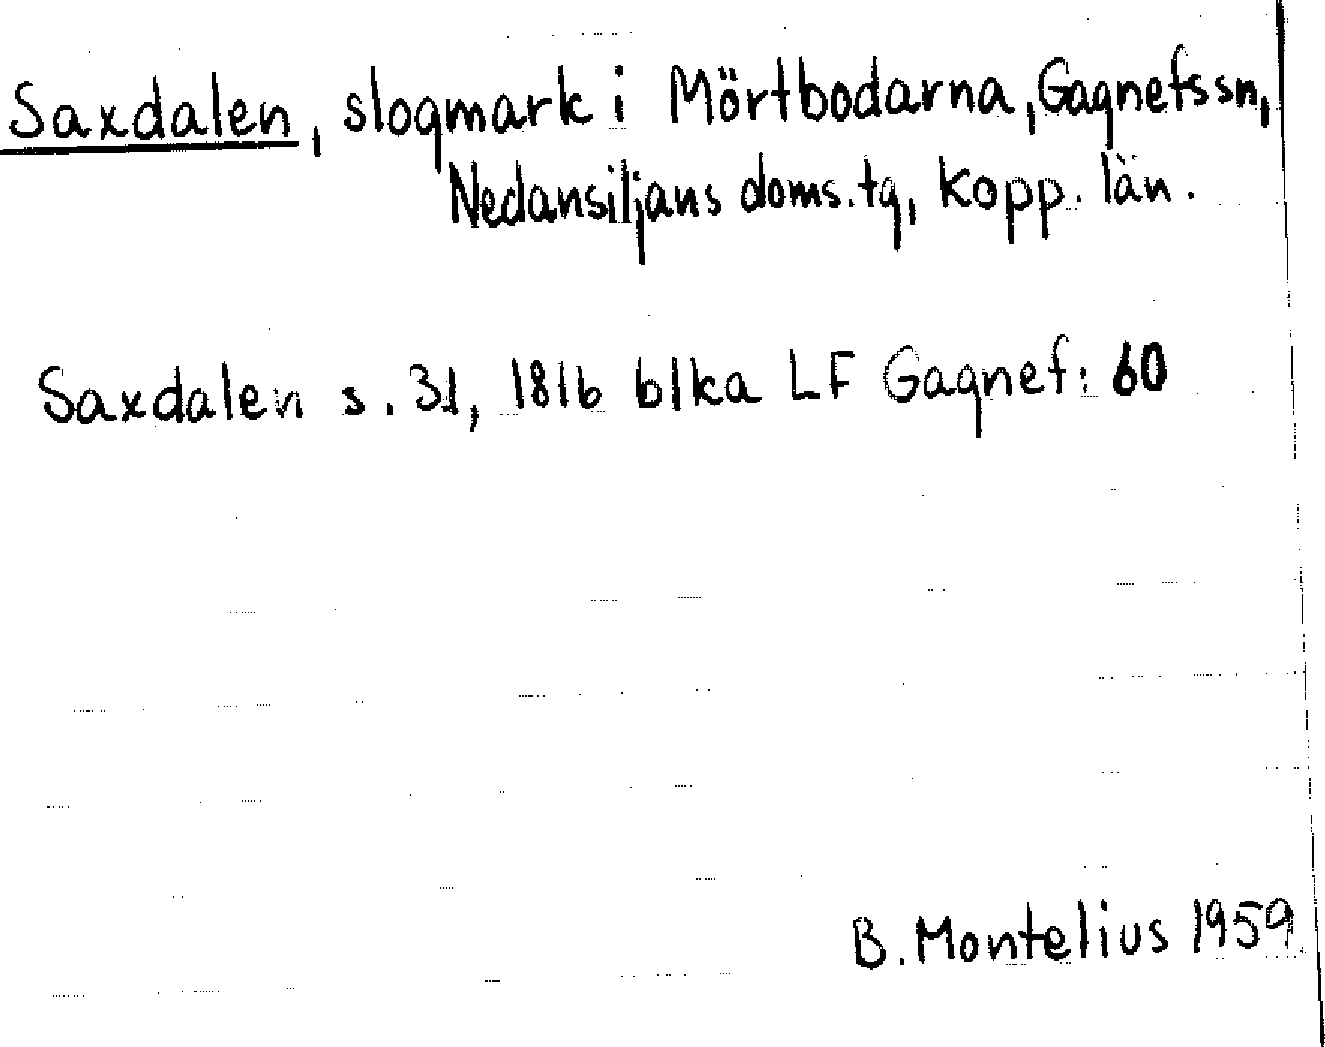 Saxdalen, slogmark i Mörtbodarna, Gagnefs sn,
Nedansiljans doms.tg, Kopp. län.
Saxdalen s. 31, 1816 blka LF Gagnef: 60
B. Montelius 1959